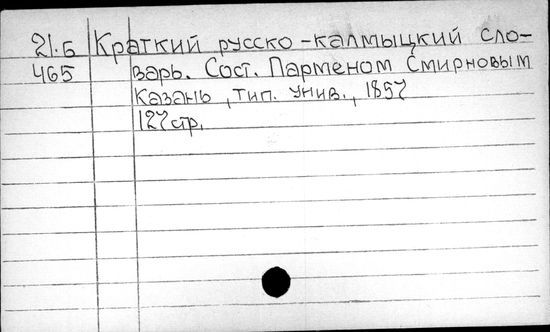 21.Б Краткий русско-калмыцкий сло-
465 варь. Сост. Парменом Смирновым
Казань, тип. Унив., 1857
127 стр.